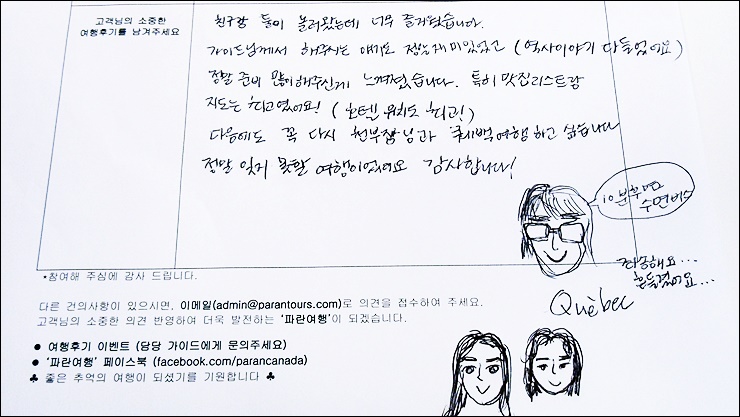 고객님의 소중한
여행후기를 남겨주세요
친구랑 둘이 놀러왔는데 너무 즐거웠습니다.
가이드님께서 해주시는 얘기도 정말 재미있었고 (역사이야기 다 들었어요)
정말 준비 많이 해주신게 느껴졌습니다. 특히 맛집리스트랑
지도는 최고였어요! (호텐 위치도 최고!)
다음에도 꼭 다시 천부장님과 퀘백여행 하고 싶습니다
정말 잊지 못할 여행이었어요 감사합니다!
10분후면
수면버스
죄송해요...
흔들렸어요...
Québec
*참여해 주심에 감사 드립니다.
다른 건의사항이 있으시면, 이메일(admin@parantours.com)로 의견을 접수하여 주세요.
고객님의 소중한 의견 반영하여 더욱 발전하는 ‘파란여행’이 되겠습니다.
● 여행후기 이벤트 (담당 가이드에게 문의주세요)
● ‘파란여행’ 페이스북 (facebook.com/parancanada)
♣ 좋은 추억의 여행이 되셨기를 기원합니다 ♣